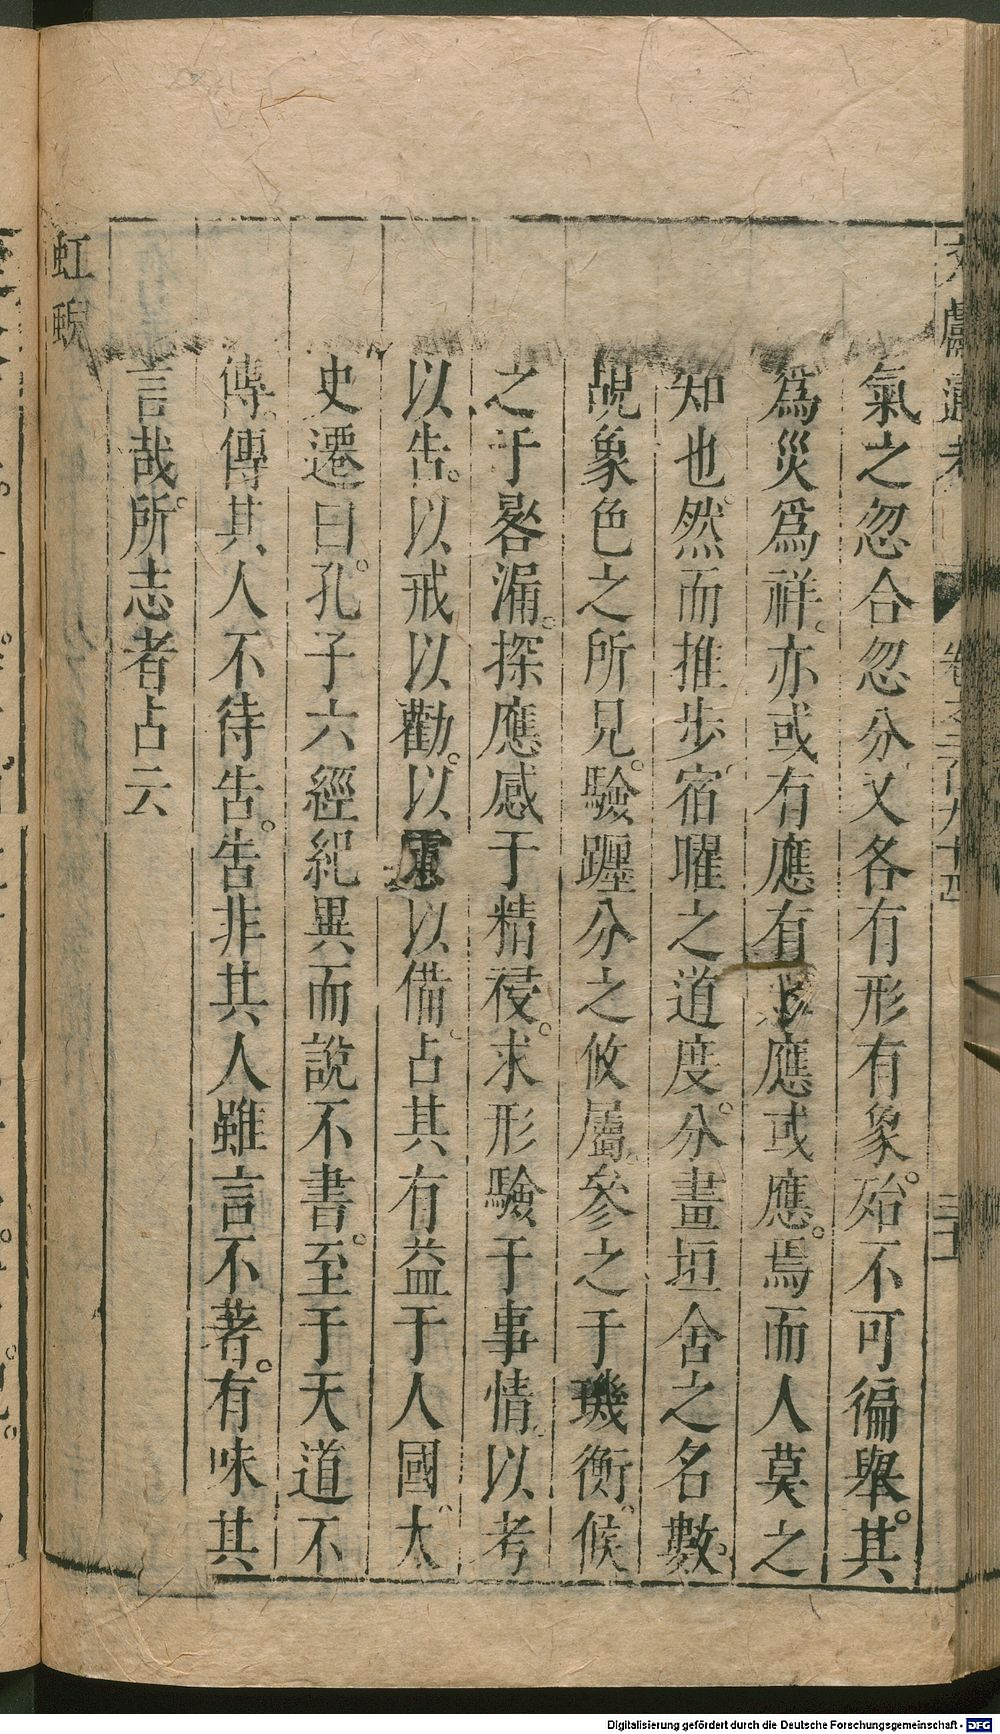 文獻通考 卷之二百九十四 三十一
氣之忽合忽分又各有形有象。殆不可徧舉。其
爲災爲祥。亦或有應有不應或應。焉而人莫之
知也。然而推步宿曜之道度。分畫垣舍之名數。
覘象色之所見。驗躔分之攸屬。參之于璣衡。候
之于晷漏。探應感于精祲。求形驗于事情。以考
以告。以戒以勸。以以備。占其有益于人國。太
史遷曰。孔子六經紀異而說不書。至于天道不
傳。傳其人不待告。告非其人雖言不著。有味其
言哉。所志者占云
虹蜺
Digitalisierung gefördert durch die Deutsche Forschungsgemeinschaft - DFG